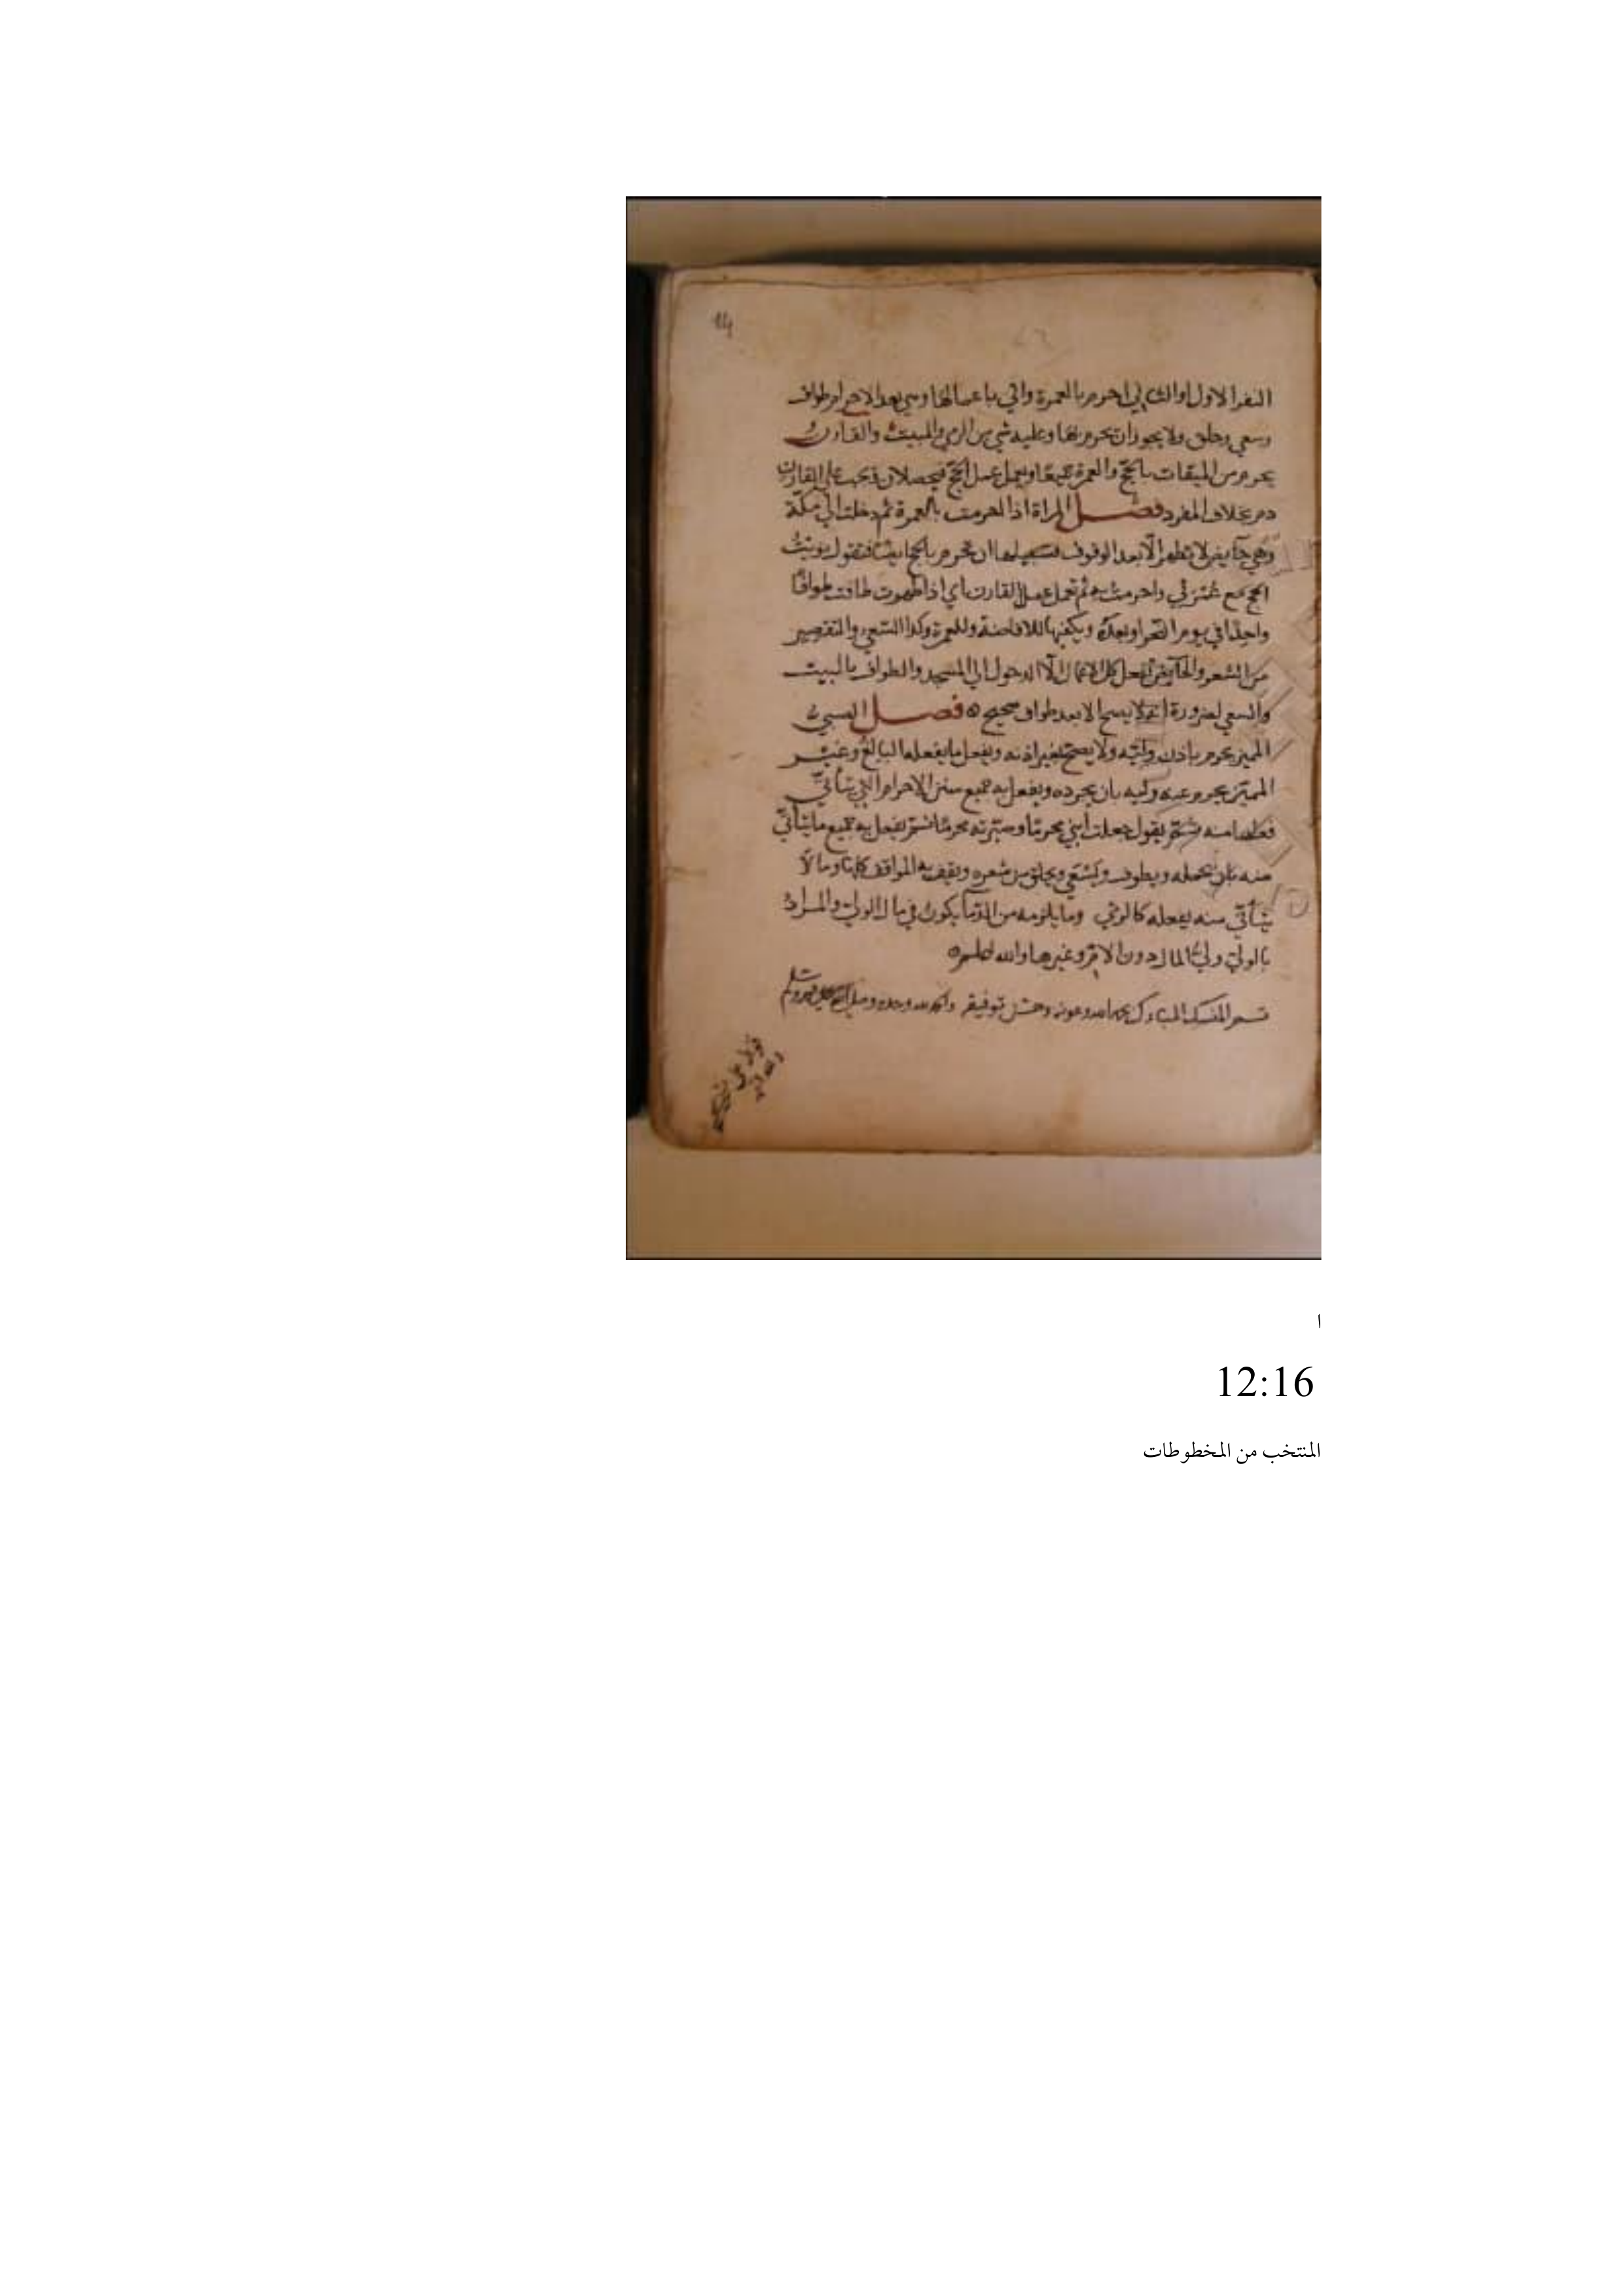 14
النفر الاول او الثاني احرم بالعمرة واتي باعمالها وهي بعد الاحرام طواف
وسعي وحلق ولا يجوز ان يحرم بها وعليه شي من الرمي والمبيت والقارن
يحرم من الميقات بالحج والعمرة جميعا ويعمل عمل الحج فيحصلان ويجب علي القارن
دم بخلاف المفرد فصل المراة اذا احرمت بالعمرة ثم دخلت الي مكة
وهي حايض لا تطهر الا بعد الوقوف فسبيلها ان تحرم بالحج فتقول نويت
الحج مع عمرتي واحرمت به ثم تعمل عمل القارن اي اذا طهرت طافت طوافا
واحدا في يوم النحر او بعده ويكفيها للافاضة وللعمرة وكذا السعي والتقصير
من الشعر والحايض تفعل كل الاعمال الا الدخول الي المسجد والطواف بالبيت
والسعي لضرورة انه لا يصح الا بعد طواف صحيح ه فصل الصبي
المميز يحرم باذن وليه ولا يصح بغير اذنه ويفعل ما يفعله البالغ وغير
المميز يحرم عنه وليه بان يجرده ويفعل به جميع سنن الاحرام التي يتأتي
فعلها منه ثم يقول جعلت ابني محرما وصيرته محرما ثم يفعل به جميع ما يتأتي
منه بان يحمله ويطوف ويسعي ويحلق من شعره ويقف به المواقف كلها وما لا
يتأتي منه يفعله كالرمي وما يلزمه من الدما يكون في مال الولي والمراد
بالولي ولي المال دون الام وغيرها والله اعلم ه
تم المنسك المبارك بحمد الله وعونه وحسن توفيقه والحمد لله وحده
ا
12:16
المنتخب من المخطوطات